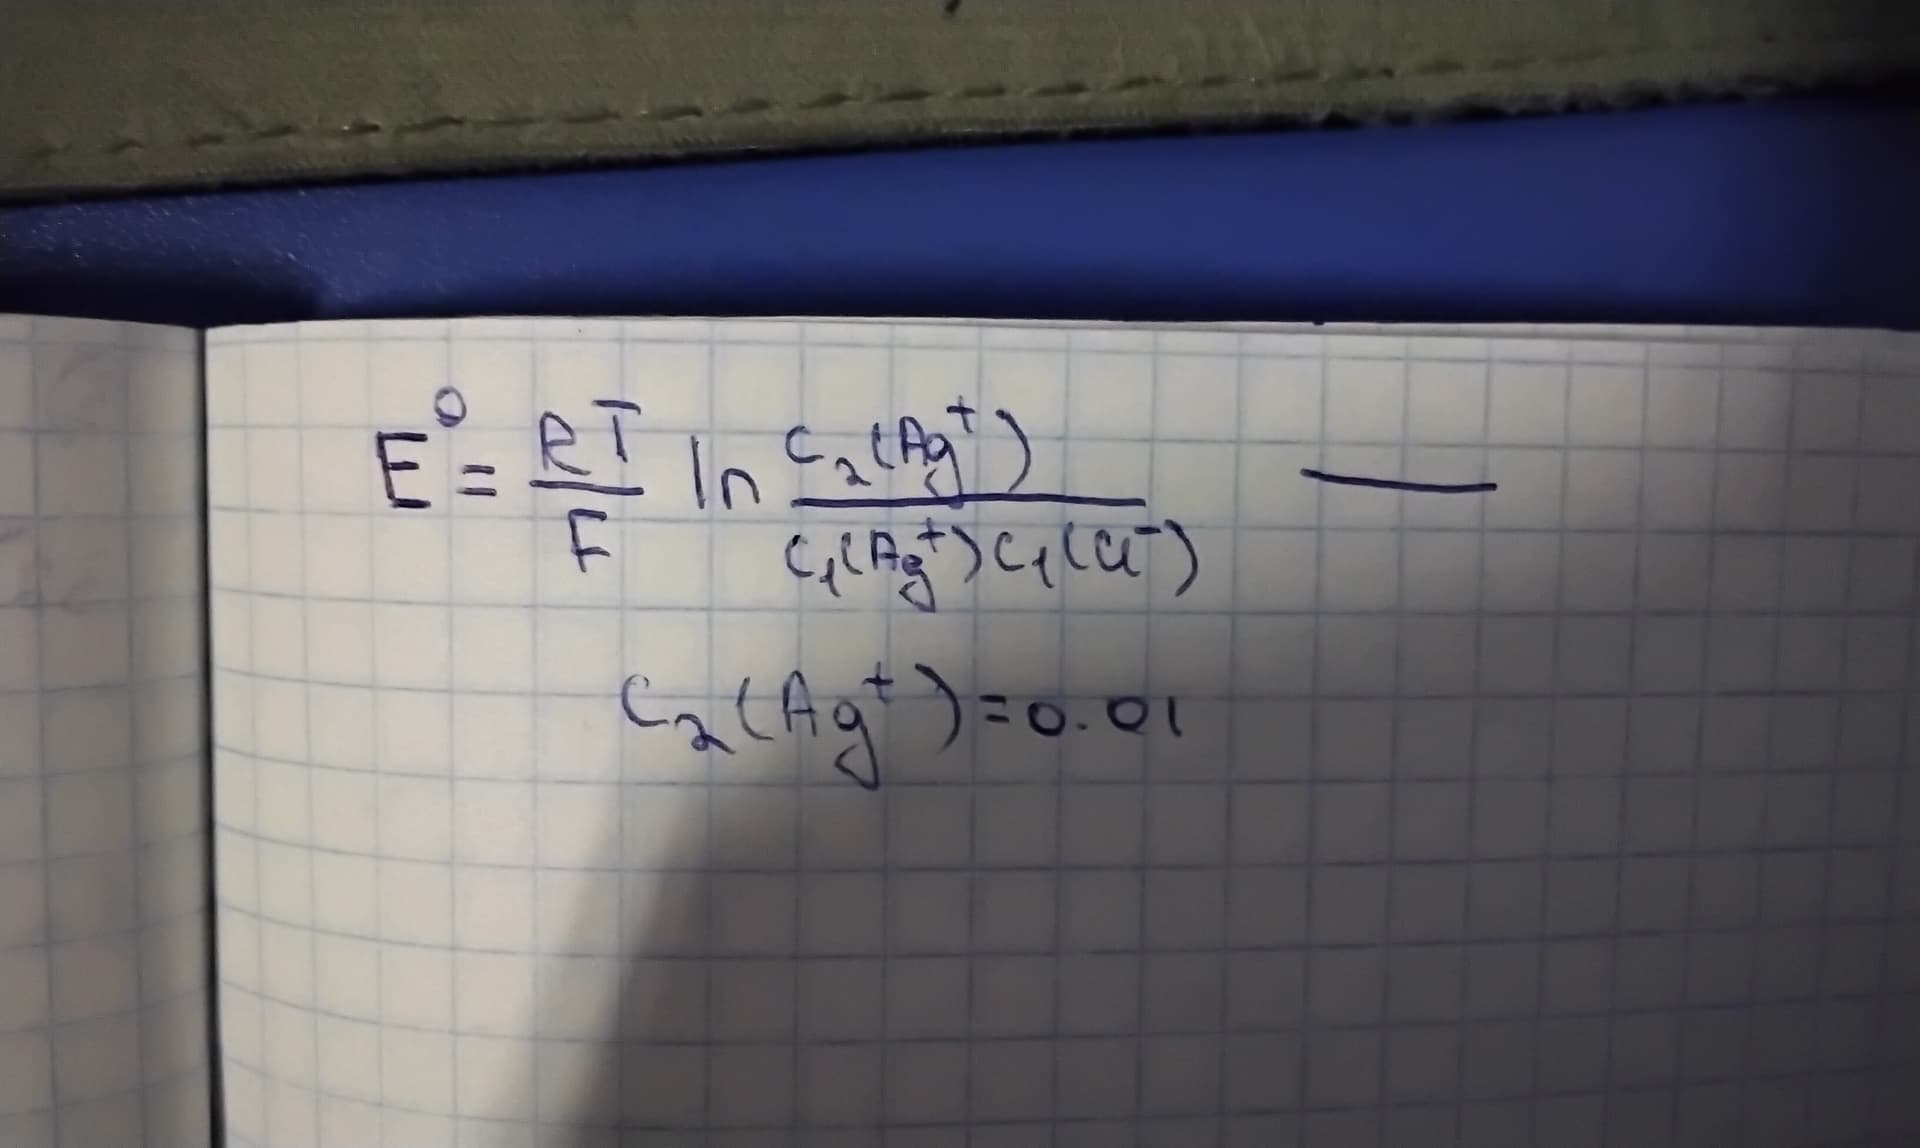 E⁰ = RT/F ln C₂(Ag⁺)/C₁(Ag⁺)C₁(Cl⁻) —
C₂(Ag⁺)=0.01